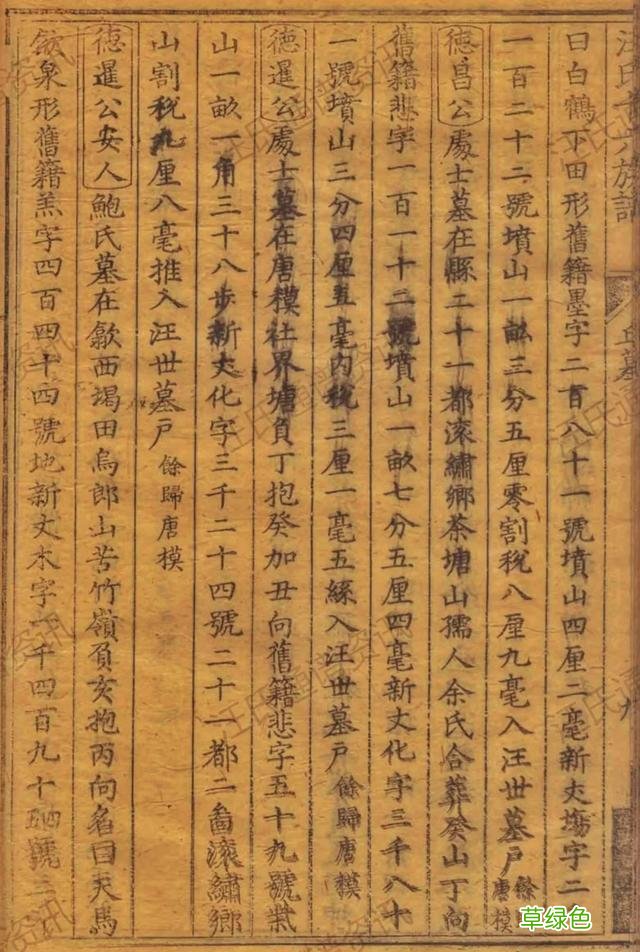 汪氏十六族譜
丘墓
九
曰白鶴下田形舊籍墨字二百八十一號墳山四厘二毫新丈塲字二
一百二十二號墳山一畝三分五厘零割稅八厘九毫入汪世墓戶餘歸唐模
德昌公處士墓在縣二十一都滚繡鄉茶塘山孺人余氏合葬癸山丁向
舊籍悲字一百一十二號墳山一畝七分五厘四毫新丈化字三千八十
一號墳山三分四厘五毫内稅三厘一毫五絲入汪世墓戶餘歸唐模
德暹公處士墓在唐模社界塘負丁抱癸加丑向舊籍悲字五十九號業
山一畝一角三十八步新丈化字三千二十四號二十一都二啚滚繡鄉
山割稅九厘八毫推入汪世墓戶餘歸唐模
德暹公安人鮑氏墓在歙西堨田烏郎山苦竹嶺負亥抱丙向名曰天馬
飲泉形舊籍羔字四百四十四號地新丈木字一千四百九十四號三
汪氏通譜资讯
草绿色